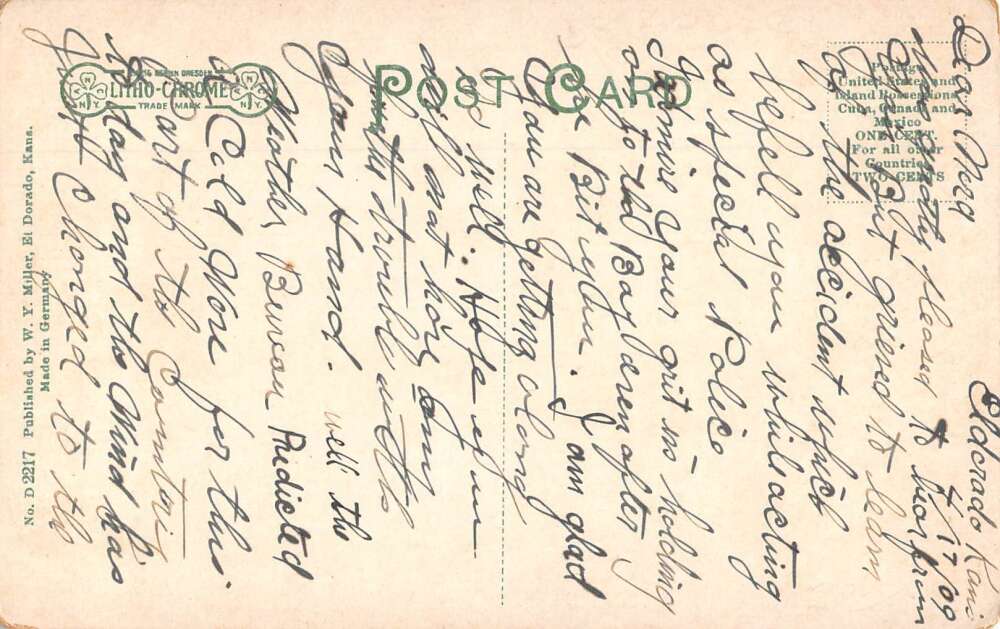 Eldorado Kans
4/17/09
Dear Nora
Was mutly pleased to hear from
you But grieved to learn
of the accident which
befell you while acting
as special Police
I admire your grit in holding
on to the Bayberen after
he Bit you. I am glad
you are getting along
so well. Hope you
will not have any
further trouble with
your Hand. Well the
Weather Bureau Predicted
a Cold Wave for this
Part of the Countrie
today and the Wind has
just Changed to the
POST CARD
LITHO-CHROME
TRADE MARK
N
N.Y.
N
N.Y.
Postage
United States and
Island Possessions
Cuba, Canada and
Mexico
ONE CENT.
For all other
Countries
TWO CENTS
No. D 2217 Published by W. Y. Miller, El Dorado, Kans.
Made in Germany